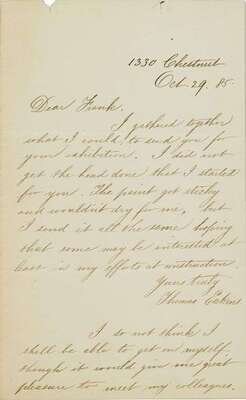 1330 Chestnut
Oct. 29. 85.
Dear Frank.
I gathered together
what I could, to send you for
your exhibition. I did not
get the head done that I started
for you. The paint got sticky
and wouldn't dry for me, but
I send it all the same hoping
that some may be interested at
least in my efforts at instruction.
Yours truly
Thomas Eakins
I do not think I
shall be able to get on myself,
though it would give me great
pleasure to meet my colleagues.